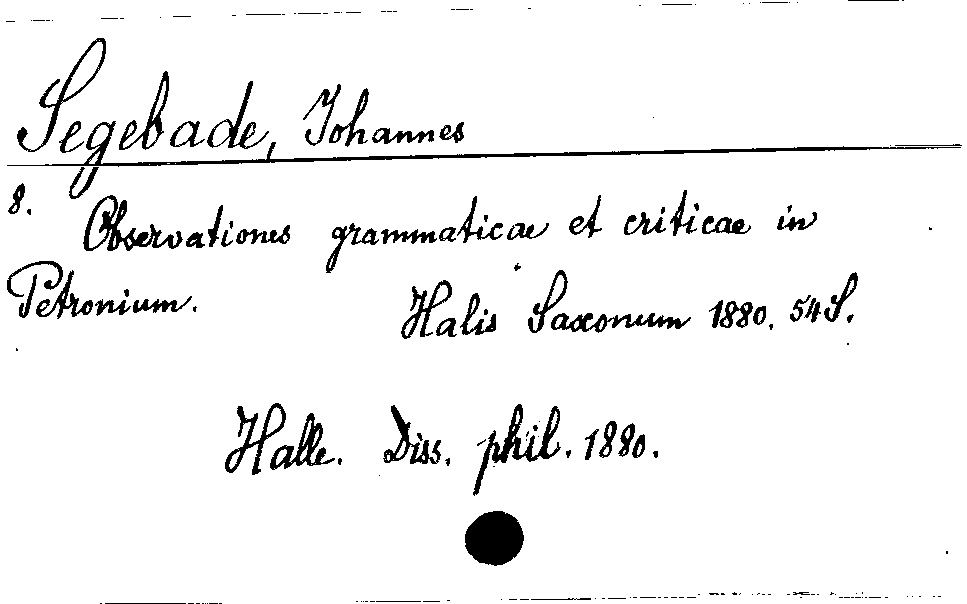 Segebade, Johannes
8.
Observationes grammaticae et criticae in
Petronium. Halis Saxonum 1880. 54 S.
Halle. Diss. phil. 1880.